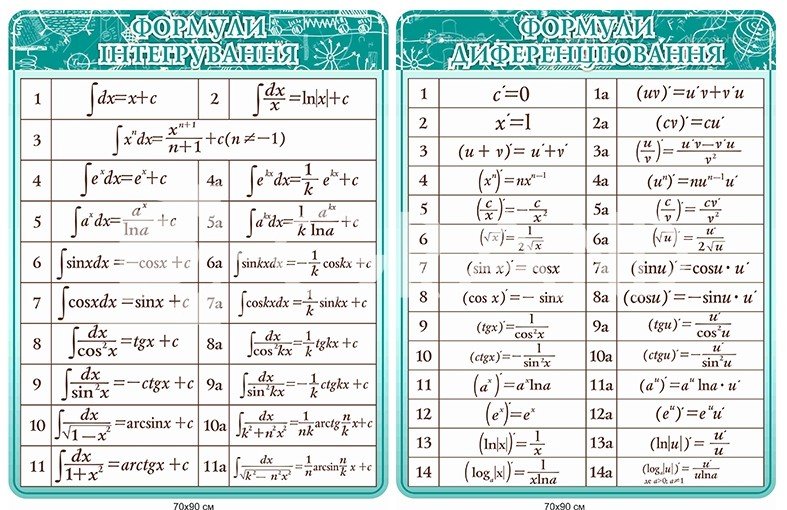 ФОРМУЛИ
ІНТЕГРУВАННЯ
1 ∫dx=x+c 2 ∫dx/x=ln|x|+c
3 ∫xⁿdx=xⁿ⁺¹/n+1+c(n≠-1)
4 ∫eˣdx=eˣ+c 4а ∫eᵏˣdx=1/k eᵏˣ+c
5 ∫aˣdx=aˣ/lna+c 5а ∫aᵏˣdx=1/k aᵏˣ/lna+c
6 ∫sinxdx=-cosx+c 6а ∫sinkxdx=-1/k coskx+c
7 ∫cosxdx=sinx+c 7а ∫coskxdx=1/k sinkx+c
8 ∫dx/cos²x=tgx+c 8а ∫dx/cos²kx=1/k tgkx+c
9 ∫dx/sin²x=-ctgx+c 9а ∫dx/sin²kx=-1/k ctgkx+c
10 ∫dx/√1-x²=arcsinx+c 10а ∫dx/k²+n²x²=1/nk arctg n/k x+c
11 ∫dx/1+x²=arctgx+c 11а ∫dx/√k²-n²x²=1/n arcsin n/k x+c
70х90 см
ФОРМУЛИ
ДИФЕРЕНЦІЮВАННЯ
1 c′=0 1а (uv)′=u′v+v′u
2 x′=1 2а (cv)′=cu′
3 (u+v)′=u′+v′ 3а (u/v)′=u′v-v′u/v²
4 (xⁿ)′=nxⁿ⁻¹ 4а (uⁿ)′=nuⁿ⁻¹u′
5 (c/x)′=-c/x² 5а (c/v)′=cv′/v²
6 (√x)′=1/2√x 6а (√u)′=u′/2√u
7 (sin x)′=cosx 7а (sinu)′=cosu·u′
8 (cos x)′=-sinx 8а (cosu)′=-sinu·u′
9 (tgx)′=1/cos²x 9а (tgu)′=u′/cos²u
10 (ctgx)′=-1/sin²x 10а (ctgu)′=-u′/sin²u
11 (aˣ)′=aˣlna 11а (aᵘ)′=aᵘlna·u′
12 (eˣ)′=eˣ 12а (eᵘ)′=eᵘu′
13 (ln|x|)′=1/x 13а (ln|u|)′=u′/u
14 (logₐ|x|)′=1/xlna 14а (logₐ|u|)′=u′/ulna
де a>0; a≠1
70х90 см